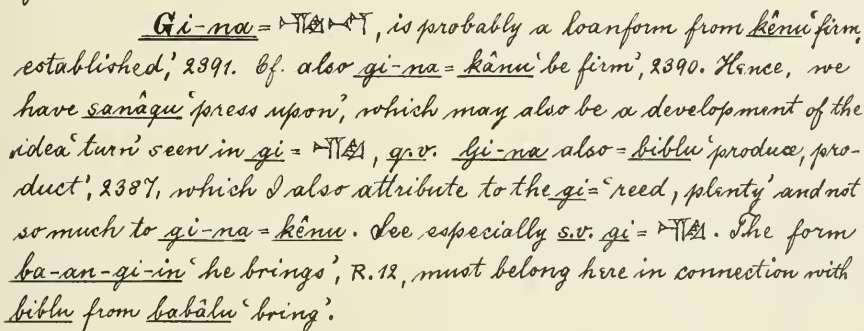 Gi-na = 𒄀𒈾, is probably a loanform from kênu ‘firm,
established,’ 2391. Cf. also gi-na = kânu ‘be firm’, 2390. Hence, we
have sanâqu ‘press upon’, which may also be a development of the
idea ‘turn’ seen in gi = 𒄀, q.v. Gi-na also = biblu ‘produce, pro-
duct’, 2387, which I also attribute to the gi = ‘reed, plenty’ and not
so much to gi-na = kênu. See especially s.v. gi = 𒄀. The form
ba-an-gi-in ‘he brings’, R.12, must belong here in connection with
biblu from babâlu ‘bring’.